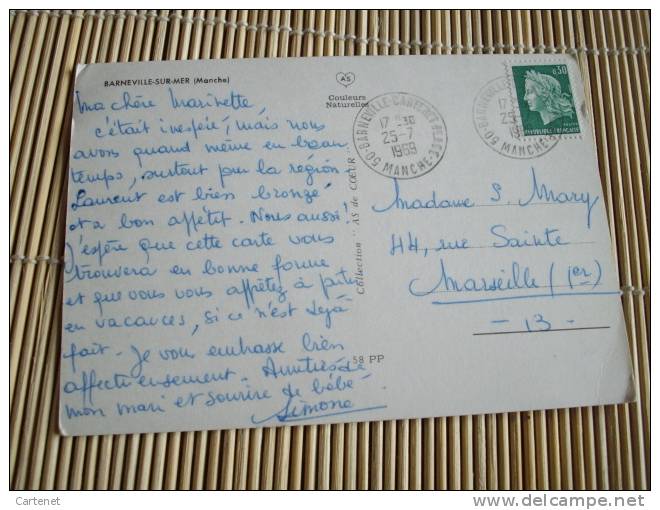 BARNEVILLE-SUR-MER (Manche)
Ma chère Marinette,
c'était inespéré, mais nous
avons quand même eu beau
temps, surtout pour la région.
Laurent est bien bronzé
et a bon appétit. Nous aussi!
J'espère que cette carte vous
trouvera en bonne forme
et que vous vous apprêtez à partir
en vacances, si ce n'est déjà
fait. Je vous embrasse bien
affectueusement. Amitiés de
mon mari et sourire de bébé
Simone
AS
Couleurs
Naturelles
Collection "AS de CŒUR"
58 PP
50-BARNEVILLE-CARTERET
17 H -30
25-7
1969
MANCHE
50-BARNEVILLE
17
25
MANCHE
0,30
REPUBLIQUE FRANÇAISE
Madame S. Mary
44, rue Sainte
Marseille (1er)
- 13 -
Cartenet
www.delcampe.net